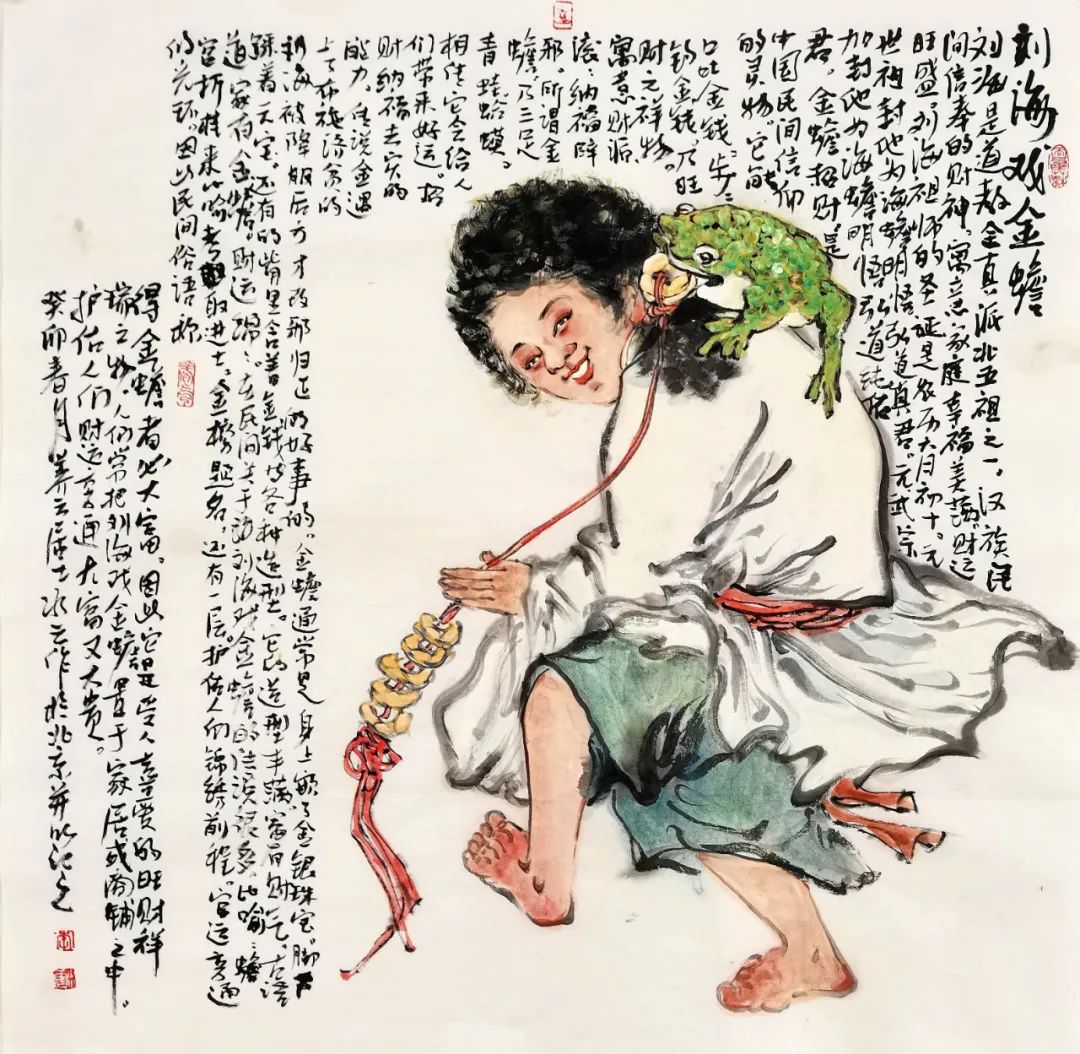 刘海戏金蟾
刘海是道教全真派北五祖之一。汉族民
间信奉的财神，寓意家庭幸福美满，财运
旺盛。刘海祖师的圣诞是农历六月初十。元
世祖封他为海蟾明悟弘道真君。元武宗
加封他为海蟾明悟弘道纯佑
君。金蟾招财是
中国民间信仰
的灵物。它能
口吐金钱。
钓金钱，乃旺
财之祥物
寓意财源
滚滚，纳福辟
邪。所谓金
蟾，乃三足
青蛙蛤蟆。
相传它会给人
们带来好运。招
财纳福去灾的
能力。传说金蟾
上天布施济贫的
刘海被降服后方才改邪归正的好事的。金蟾通常是身上负了金银珠宝。脚下
踩着元宝。还有的嘴里含着金钱等各种造型。它的造型丰满富有财气。古语
道家有金蟾财运。在民间关于刘海戏金蟾的传说很多。比喻蟾
宫折桂来比喻考取进士。金榜题名还有一层护佑人们锦绣前程。官运亨通
的光环。因此民间俗语称
得金蟾者必大富。因此它是受人喜爱的旺财祥
瑞之物。人们常把刘海戏金蟾置于家居或商铺之中。
护佑人们财运亨通大富又大贵。
癸卯春月养云居士冰云作于北京并题记之